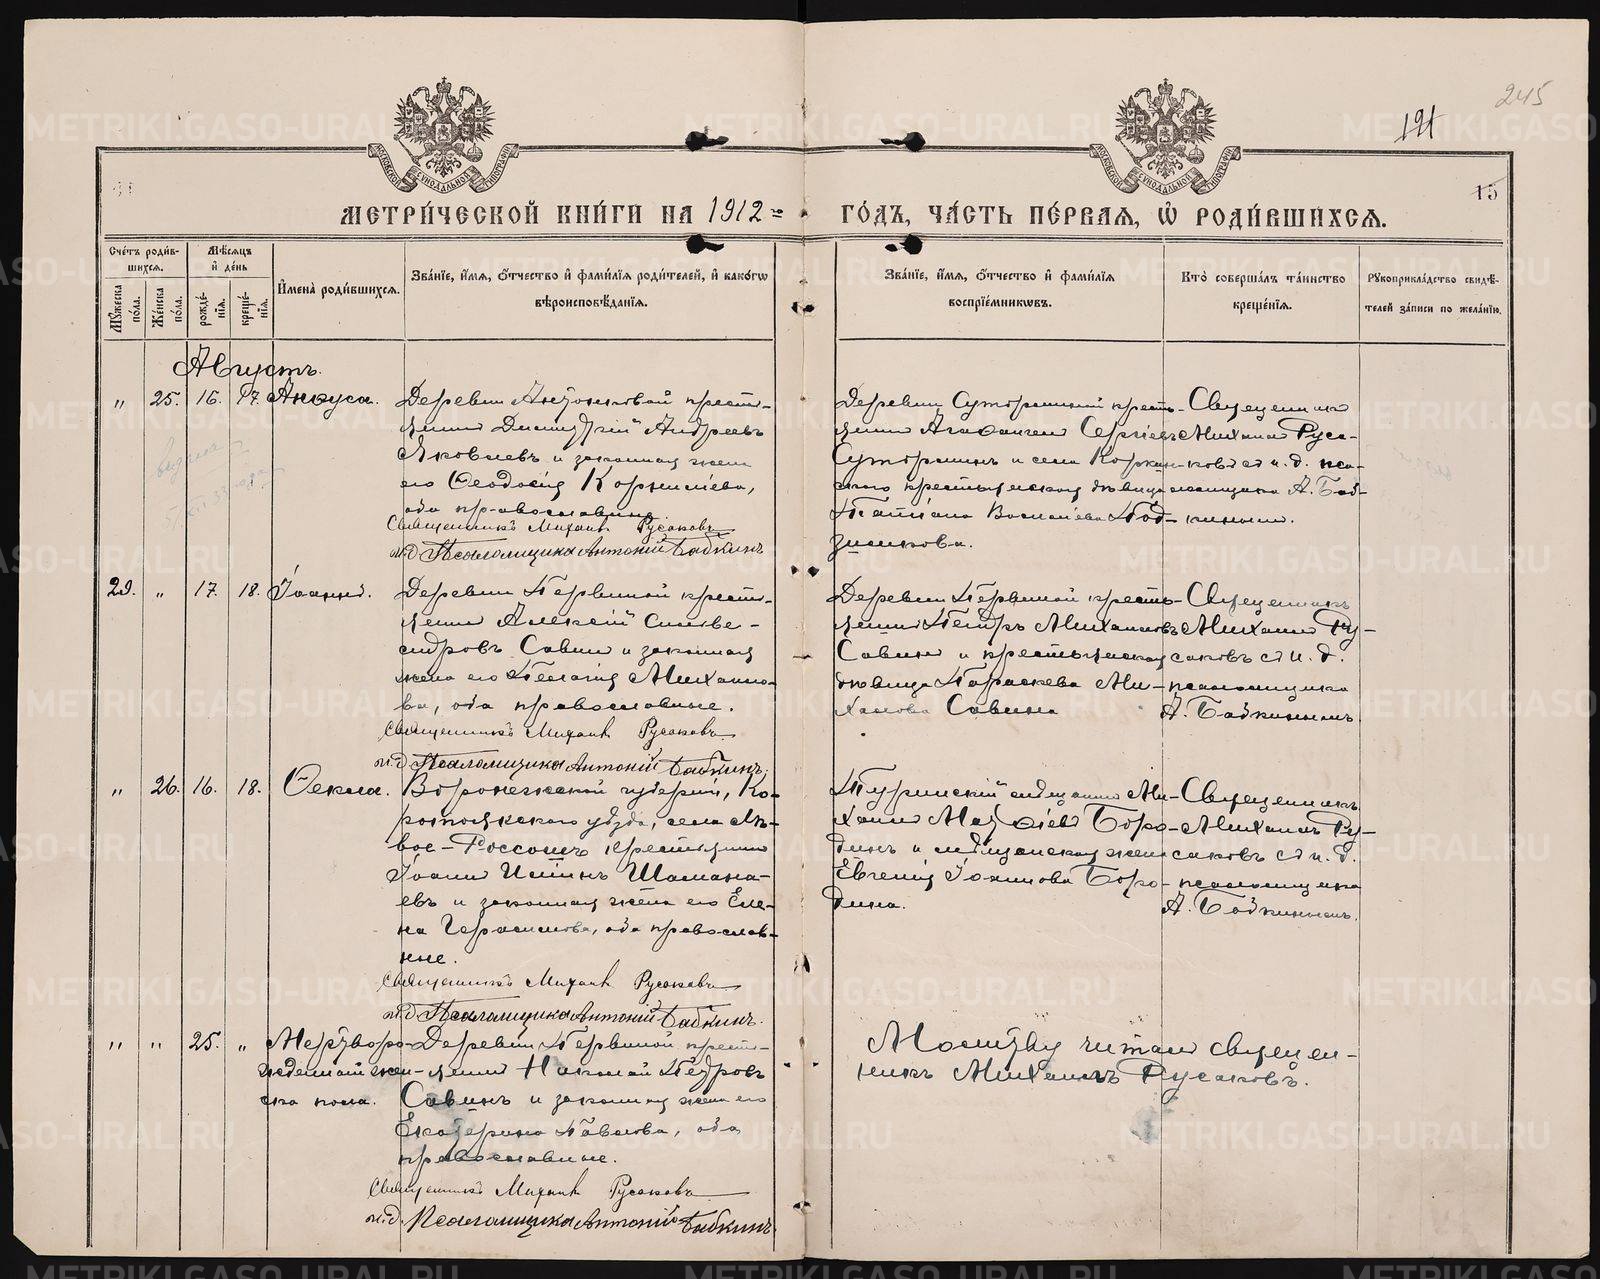 245
121
15
МЕТРИ́ЧЕСКОЙ КНИ́ГИ НА 1912 ГО́ДЪ, ЧА́СТЬ ПЕ́РВАЯ, Ѡ҆ РОДИ́ВШИХСЯ.
Сче́тъ роди́вшихся.
Мꙋ́жеска по́ла.
Же́нска по́ла.
Мѣ́сяцъ и҆ де́нь
рожде́нїя.
креще́нїя.
И҆мена̀ роди́вшихся.
Зва́нїе, и҆́мя, о҆́тчество и҆ фами́лїя роди́телей, и҆ како́гѡ
вѣроисповѣ́данїя.
Зва́нїе, и҆́мя, о҆́тчество и҆ фами́лїя
воспрїе́мникѡвъ.
Кто̀ соверша́лъ та́инство
креще́нїя.
Рꙋкоприкла́дство свидѣ́-
телей за́писи по жела́нїю.
Августъ.
" 25. 16. 17. Анѳуса.
Деревни Антоновой кресть-
янинъ Димитрій Андреевъ
Яковлевъ и законная жена
его Ѳеодосія Корниліева,
оба православные.
Священникъ Михаилъ Русаковъ
и.д. Псаломщика Антоній Бабкинъ
Деревни Суторминой кресть-
янинъ Агаѳангелъ Сергіевъ
Суторминъ и села Коркин-
скаго крестьянская дѣвица
Татіана Василіева Под-
Священникъ
Михаилъ Руса-
ковъ съ и. д. пса-
ломщика А. Баб-
кинымъ.
29. " 17. 18. Іоаннъ.
Деревни Первиной кресть-
янинъ Алексій Силиве-
стровъ Савинъ и законная
жена его Пелагія Михаило-
ва, оба православные.
Священникъ Михаилъ Русаковъ
и.д. Псаломщика Антоній Бабкинъ.
Деревни Первиной кресть-
янинъ Петръ Михаиловъ
Савинъ и крестьянская
дѣвица Параскева Ми-
хаилова Савина
Священникъ
Михаилъ Ру-
саковъ съ и. д.
псаломщика
А. Бабкинымъ.
" 26. 16. 18. Ѳекла.
Воронежской губерніи, Ко-
ротоякскаго уѣзда, села
Россошь крестьянинъ
Іоаннъ Шамана-
евъ и законная жена его Еле-
на Герасимова, оба православ-
ные.
Священникъ Михаилъ Русаковъ
и.д. Псаломщика Антоній Бабкинъ.
Туринскій мѣщанинъ Ми-
хаилъ Матѳіевъ Боро-
динъ и мѣщанская жена
Евгенія Іоаннова Боро-
дина.
Священникъ
Михаилъ Ру-
саковъ съ и. д.
псаломщика
А. Бабкинымъ.
" " 25. " Мертворо-
жденный жен-
ска пола.
Деревни Первиной кресть-
янинъ Николай Петровъ
Савинъ и законная жена его
Екатерина Павлова, оба
православные.
Священникъ Михаилъ Русаковъ
и.д. Псаломщика Антоній Бабкинъ
Молитву читалъ священ-
никъ Михаилъ Русаковъ.
METRIKI.GASO-URAL.RU